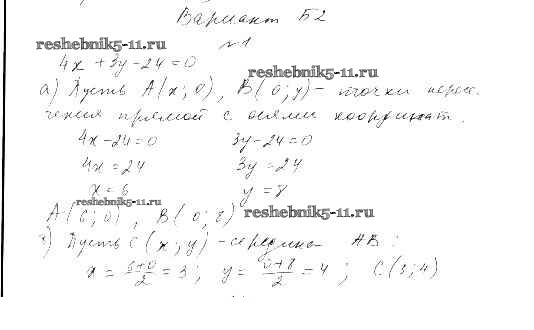 Вариант Б2
reshebnik5-11.ru
№1
4x + 3y - 24 = 0
reshebnik5-11.ru
а) Пусть A(x; 0), B(0; y) - точки перес.
чения прямой с осями координат.
4x - 24 = 0 3y - 24 = 0
4x = 24 3y = 24
x = 6 y = 8
reshebnik5-11.ru
A(6; 0), B(0; 8)
reshebnik5-11.ru
Пусть C(x; y) - середина AB:
x = 6+0/2 = 3; y = 0+8/2 = 4; C(3; 4)